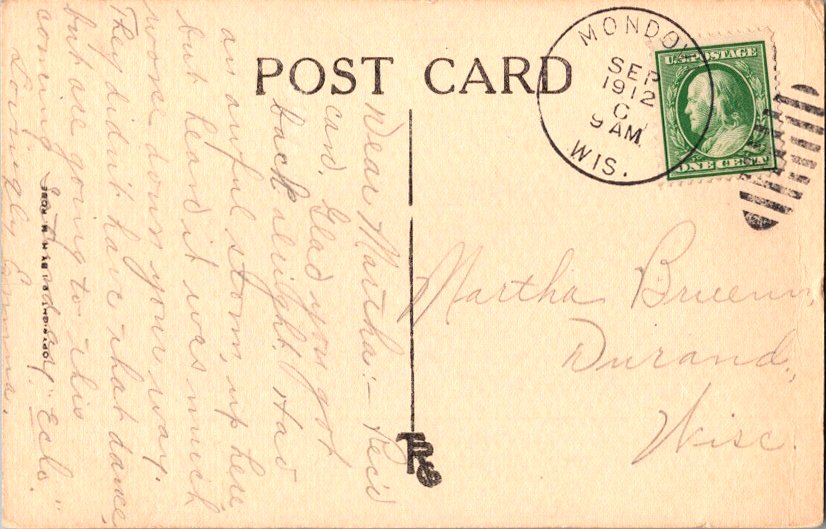 POST CARD
MONDOVI
SEP
1912
9 AM
WIS.
U.S. POSTAGE
ONE CENT
Dear Martha:- Rec'd
card. Glad you got
back alright. Had
an awful storm up here
but heard it was much
worse down your way.
They didn't have that dance,
but are going to this
coming "Echo."
Lovingly Emma.
Martha
Durand,
Wisc.
COPYRIGHT BY H M ROSE